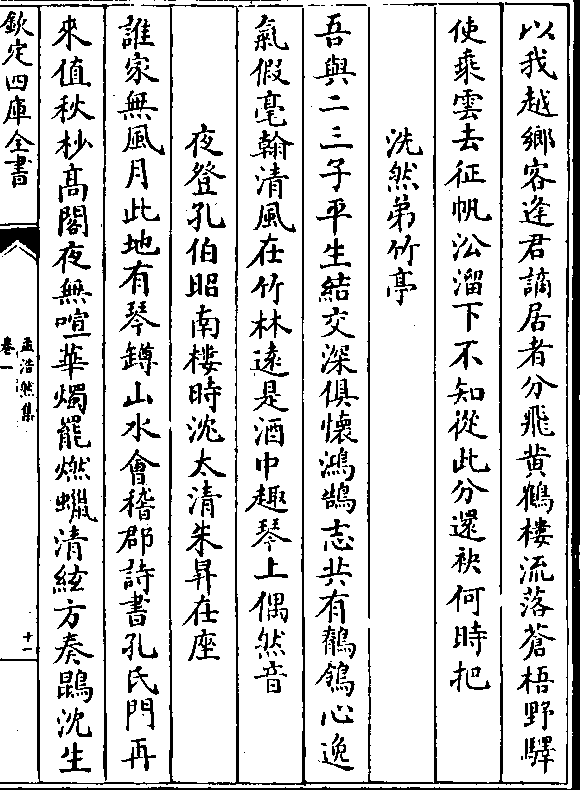 以我越鄉客逢君謫居者分飛黄鶴樓流落蒼梧野驛
使乘雲去征帆㳂溜下不知從此分還袂何時把
洗然弟竹亭
吾與二三子平生結交深俱懷鴻鵠志共有鶺鴒心逸
氣假毫翰清風在竹林遠是酒中趣琴上偶然音
夜登孔伯昭南樓時沈太清朱昇在座
誰家無風月此地有琴鐏山水會稽郡詩書孔氏門再
來值秋杪高閣夜無喧華燭罷燃蠟清絃方奏鵾沈生
欽定四庫全書
孟浩然集
卷一
十一